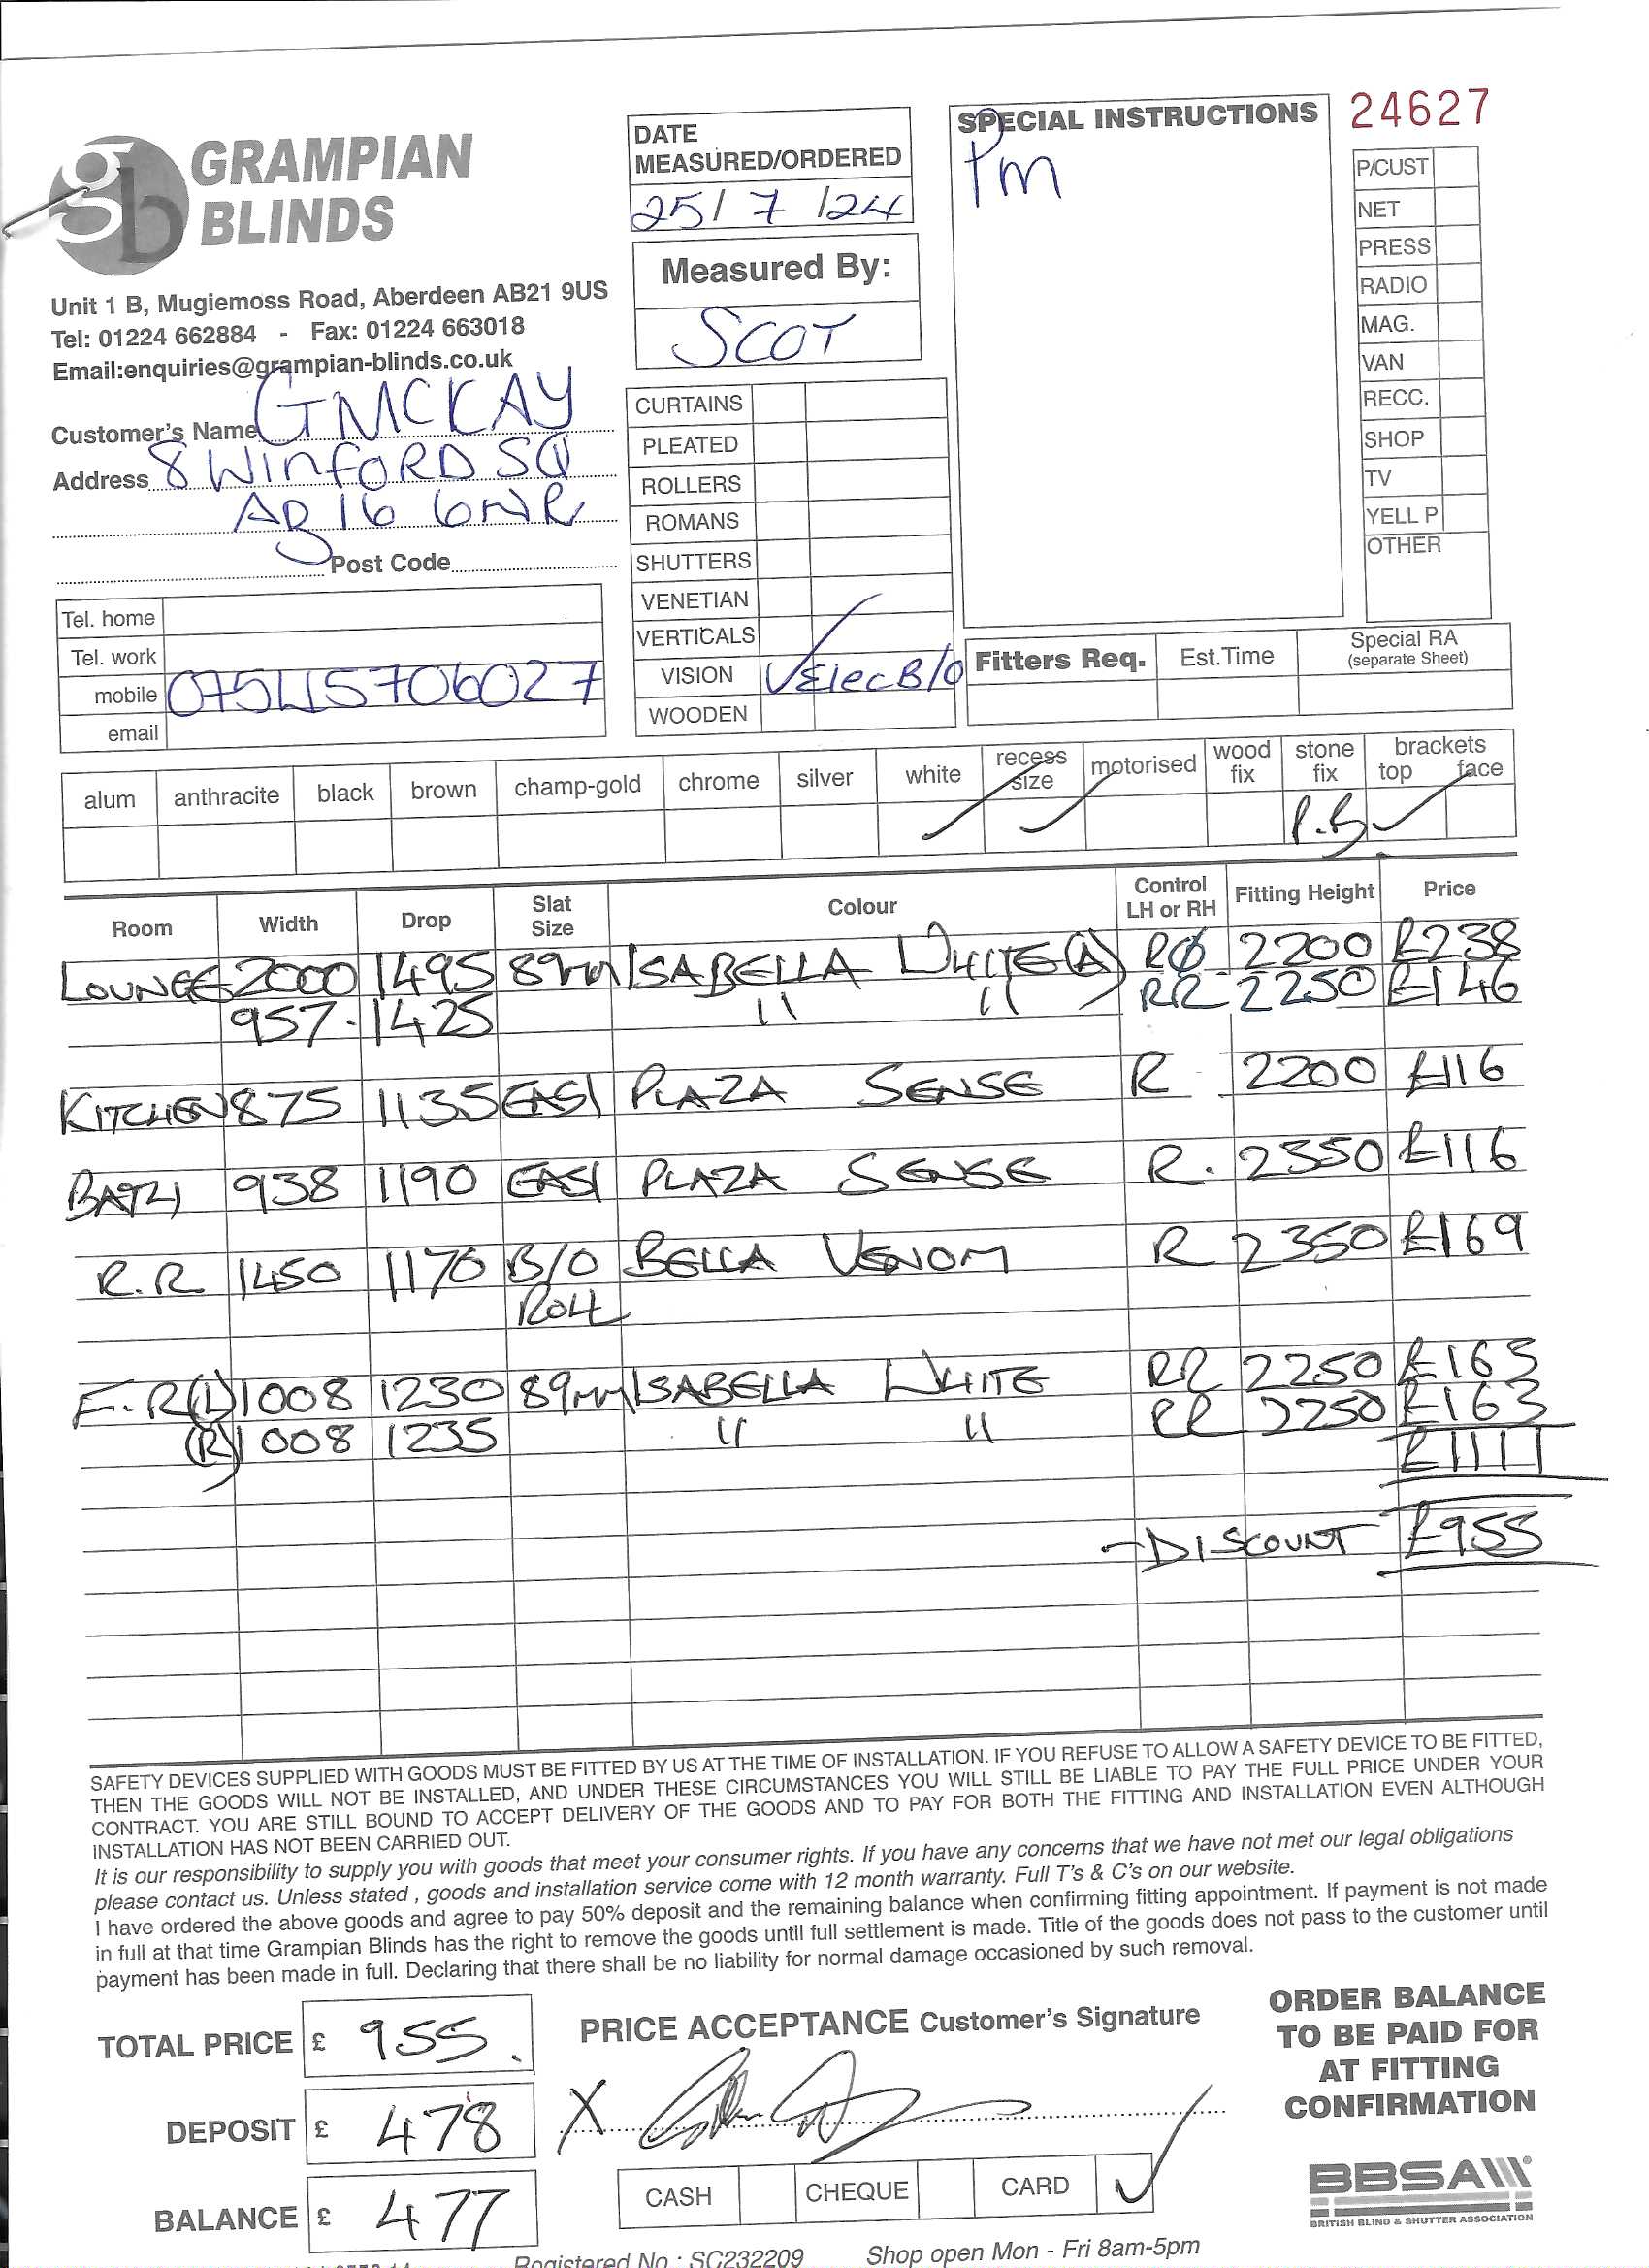 24627
GRAMPIAN
BLINDS
Unit 1 B, Mugiemoss Road, Aberdeen AB21 9US
Tel: 01224 662884 - Fax: 01224 663018
Email:enquiries@grampian-blinds.co.uk
Customer's Name G MCKAY
Address 8 WINFORD SQ
AB16 6NR
Post Code
Tel. home
Tel. work
mobile 07545706027
email
DATE
MEASURED/ORDERED
25/7/24
Measured By:
SCOT
CURTAINS
PLEATED
ROLLERS
ROMANS
SHUTTERS
VENETIAN
VERTICALS
VISION Elec B/O
WOODEN
SPECIAL INSTRUCTIONS
Pm
P/CUST
NET
PRESS
RADIO
MAG.
VAN
RECC.
SHOP
TV
YELL P
OTHER
Fitters Req. Est.Time Special RA
(separate Sheet)
alum anthracite black brown champ-gold chrome silver white recess size motorised wood fix stone fix brackets top face
P.B
Room Width Drop Slat Size Colour Control LH or RH Fitting Height Price
LOUNGE 2000 1495 89mm ISABELLA WHITE (A) 2200 £238
957 1425 " " RR 2250 £146
KITCHEN 875 1135 EASI PLAZA SENSE R 2200 £116
BATH 938 1190 EASI PLAZA SENSE R. 2350 £116
R.R 1450 1170 B/O BELLA VENOM R 2350 £169
Roll
F.R (L) 1008 1230 89mm ISABELLA WHITE RR 2250 £163
(R) 1008 1235 " " RR 2250 £163
£1111
- DISCOUNT £955
SAFETY DEVICES SUPPLIED WITH GOODS MUST BE FITTED BY US AT THE TIME OF INSTALLATION. IF YOU REFUSE TO ALLOW A SAFETY DEVICE TO BE FITTED,
THEN THE GOODS WILL NOT BE INSTALLED, AND UNDER THESE CIRCUMSTANCES YOU WILL STILL BE LIABLE TO PAY THE FULL PRICE UNDER YOUR
CONTRACT. YOU ARE STILL BOUND TO ACCEPT DELIVERY OF THE GOODS AND TO PAY FOR BOTH THE FITTING AND INSTALLATION EVEN ALTHOUGH
INSTALLATION HAS NOT BEEN CARRIED OUT.
It is our responsibility to supply you with goods that meet your consumer rights. If you have any concerns that we have not met our legal obligations
please contact us. Unless stated , goods and installation service come with 12 month warranty. Full T's & C's on our website.
I have ordered the above goods and agree to pay 50% deposit and the remaining balance when confirming fitting appointment. If payment is not made
in full at that time Grampian Blinds has the right to remove the goods until full settlement is made. Title of the goods does not pass to the customer until
payment has been made in full. Declaring that there shall be no liability for normal damage occasioned by such removal.
TOTAL PRICE £ 955.
DEPOSIT £ 478
BALANCE £ 477
PRICE ACCEPTANCE Customer's Signature
X
CASH CHEQUE CARD
ORDER BALANCE
TO BE PAID FOR
AT FITTING
CONFIRMATION
BBSA
BRITISH BLIND & SHUTTER ASSOCIATION
Registered No.: SC232209 Shop open Mon - Fri 8am-5pm